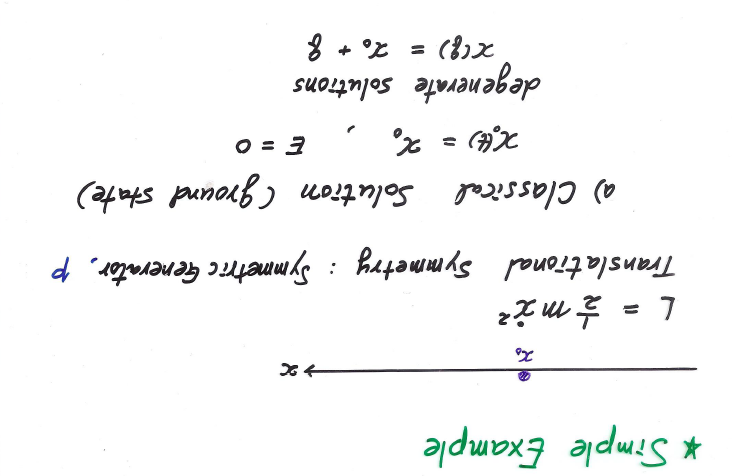 * Simple Example
x
x₀
L = 1/2 m ẋ²
Translational Symmetry : Symmetric Generator. p
a) Classical Solution (ground state)
x₀(t) = x₀ , E = 0
degenerate solutions
x(g) = x₀ + g